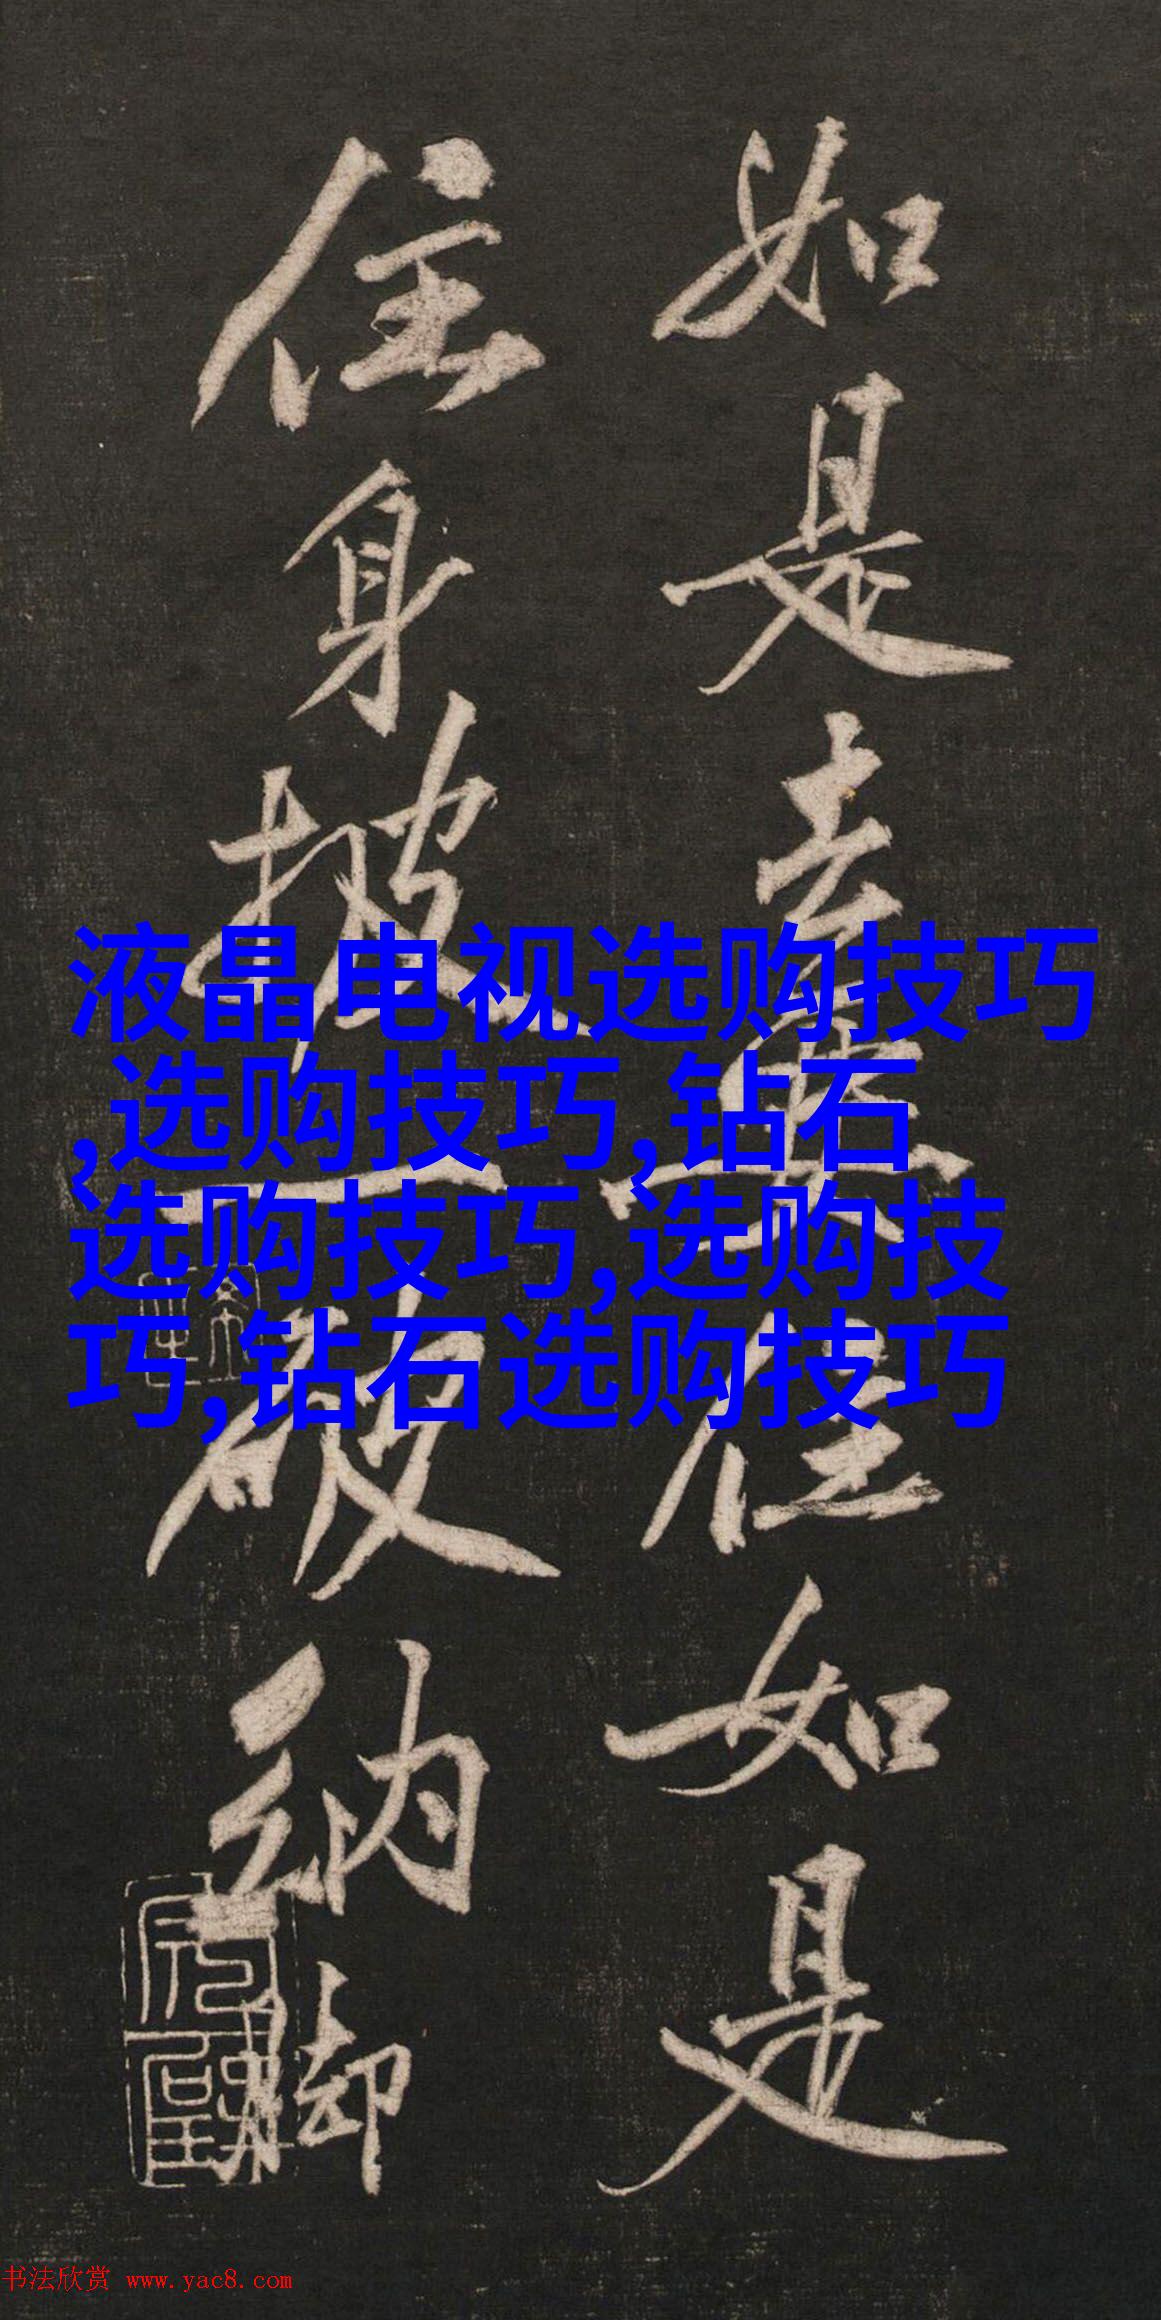 如是去如是
住身披一破納脚
液晶电视选购技巧
,选购技巧,钻石
选购技巧,选购技
巧,钻石选购技巧
书法欣赏 www.yac8.com